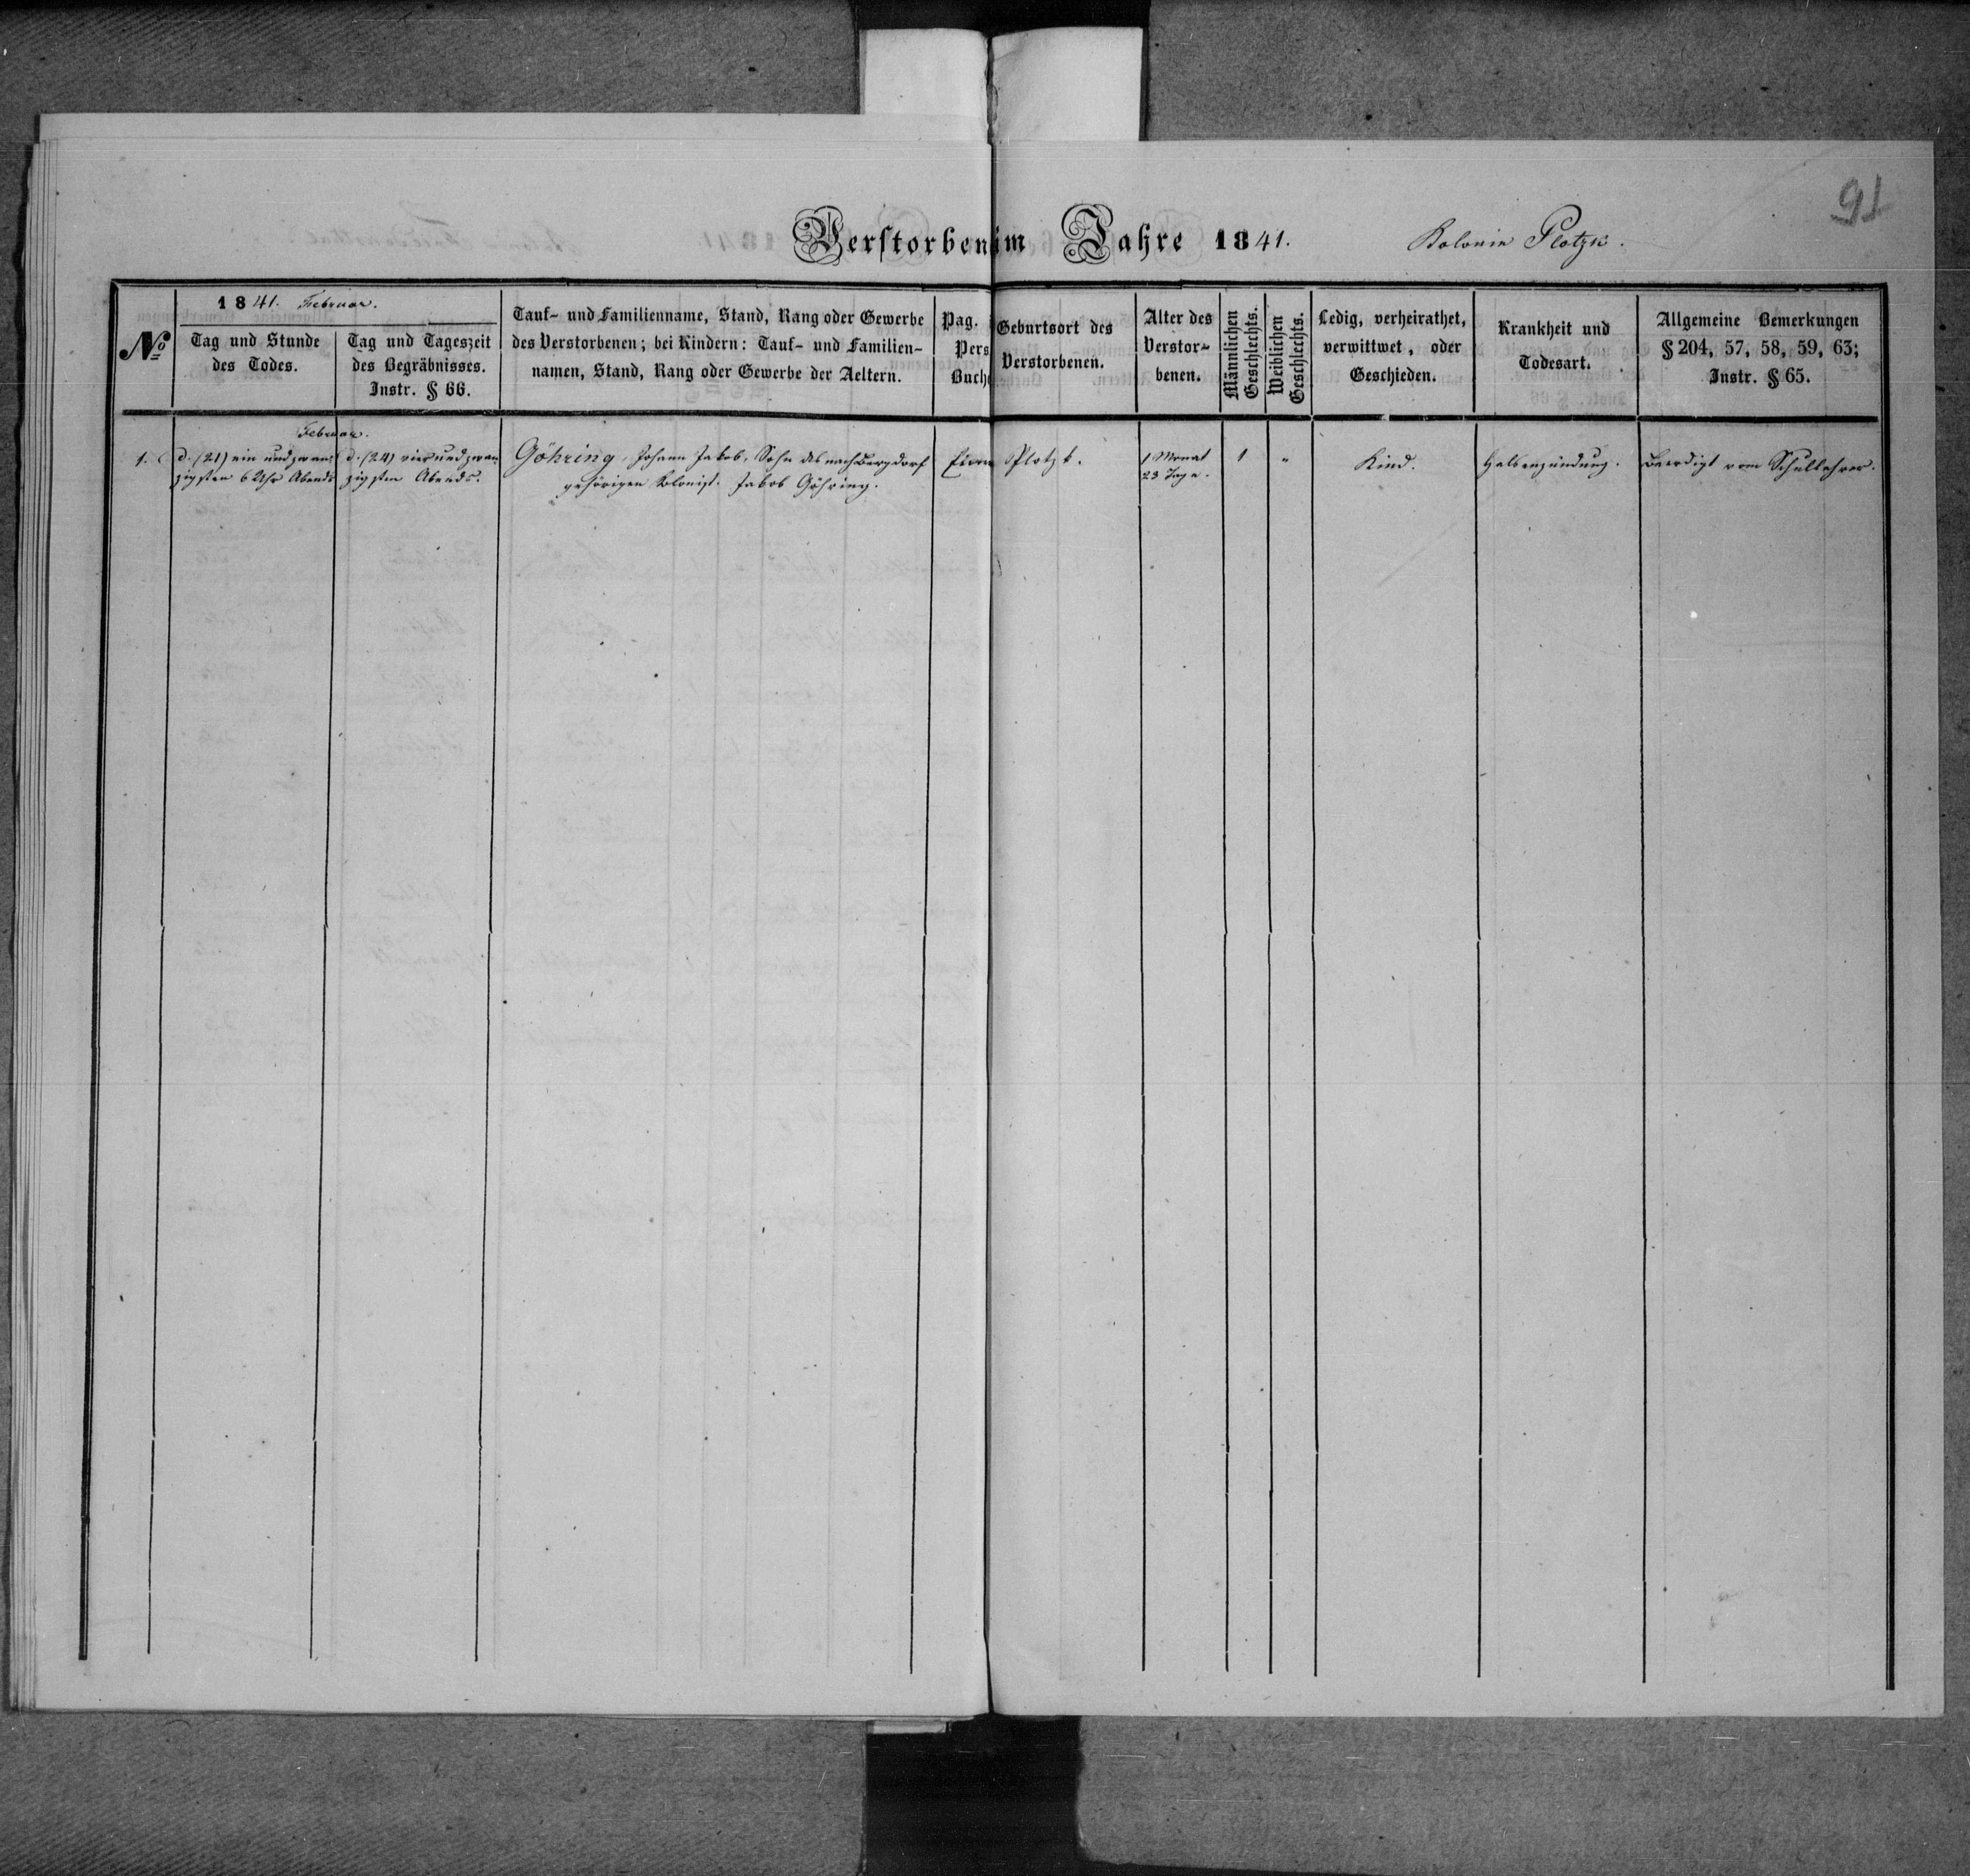 91
Verstorben im Jahre 1841. Kolonie Plotzk.
№
1841. Februar.
Tag und Stunde
des Todes.
Tag und Tageszeit
des Begräbnisses.
Instr. § 66.
Tauf- und Familienname, Stand, Rang oder Gewerbe
des Verstorbenen; bei Kindern: Tauf- und Familien-
namen, Stand, Rang oder Gewerbe der Aeltern.
Pag.
Pers
Buch
Geburtsort des
Verstorbenen.
Alter des
Verstor-
benen.
Männlichen
Geschlechts.
Weiblichen
Geschlechts.
Ledig, verheirathet,
verwittwet, oder
Geschieden.
Krankheit und
Todesart.
Allgemeine Bemerkungen
§ 204, 57, 58, 59, 63;
Instr. § 65.
Februar.
1.
d. (21) ein und zwan-
zigsten 6 Uhr Abends
d. (24) vier und zwan
zigsten Abends.
Göhring, Johann Jakob, Sohn des nach Bergdorf
gehörigen Kolonist. Jakob Göhring.
Plotzk.
1 Monat
23 Tage.
1
"
Kind.
Halsenzündung.
Beerdigt vom Schullehrer.